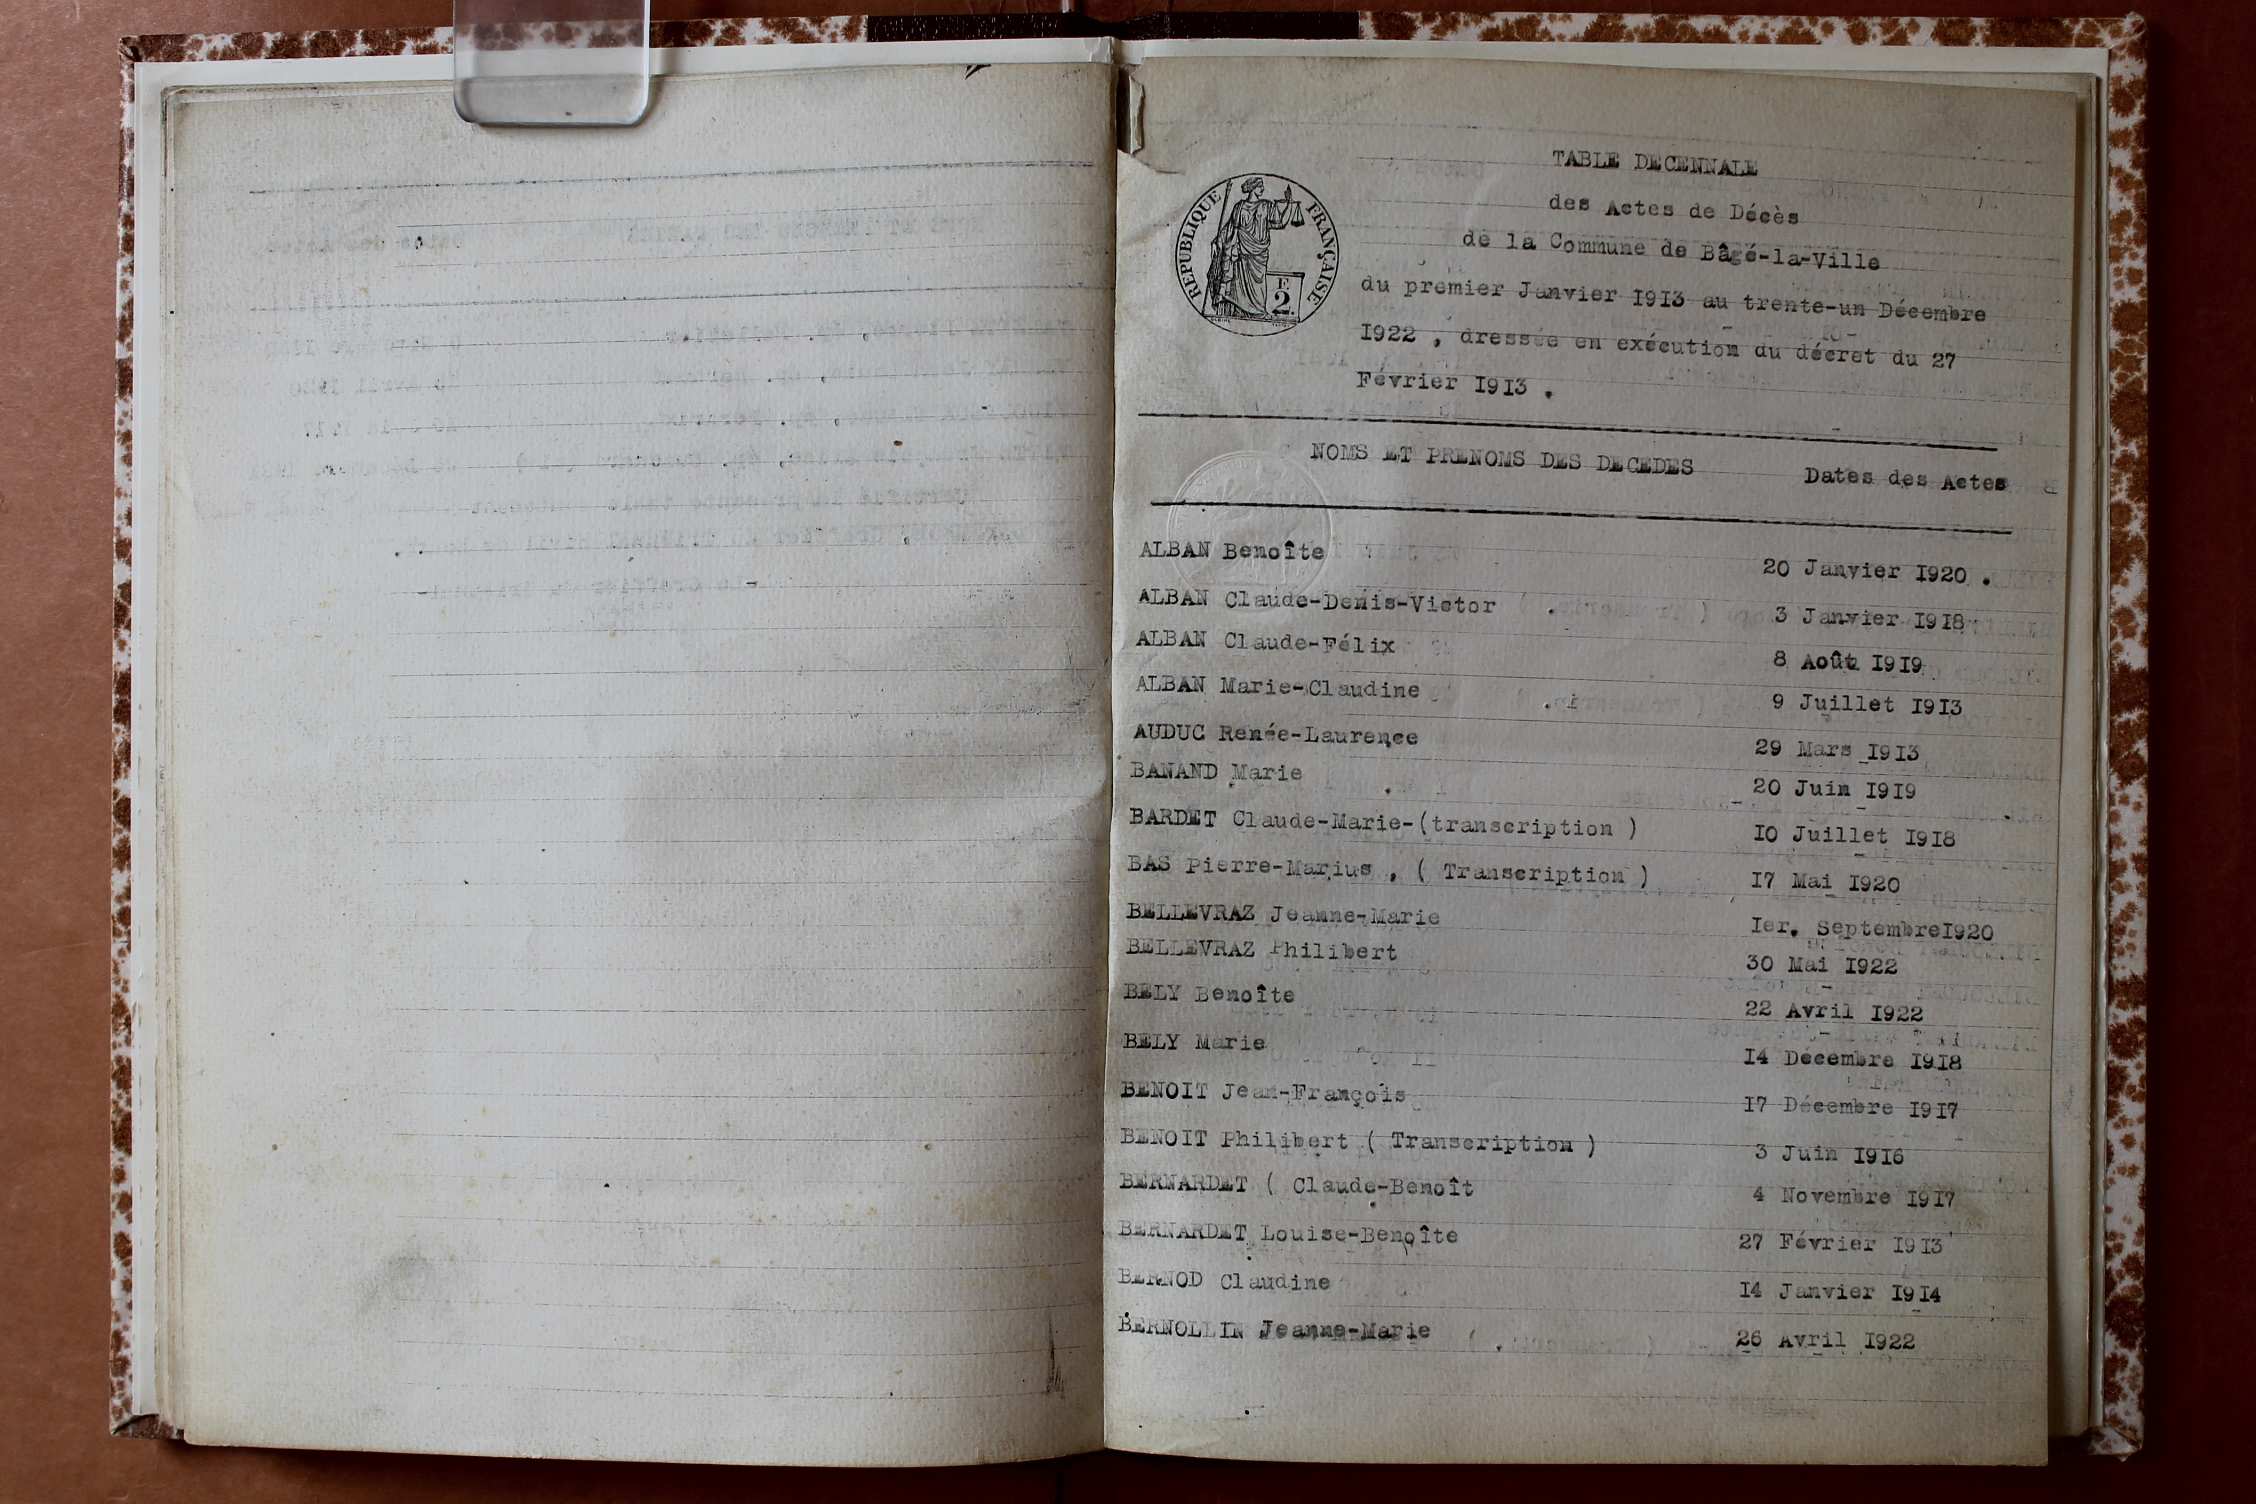 TABLE DECENNALE
des Actes de Décès
de la Commune de Bâgé-la-Ville
REPUBLIQUE FRANÇAISE
E
2.
du premier Janvier I9I3 au trente-un Décembre
I922 , dressée en exécution du décret du 27
Février I9I3 .
NOMS ET PRENOMS DES DECEDES Dates des Actes
ALBAN Benoîte 20 Janvier I920 .
ALBAN Claude-Denis-Victor 3 Janvier I9I8
ALBAN Claude-Félix 8 Août I9I9
ALBAN Marie-Claudine 9 Juillet I9I3
AUDUC Renée-Laurence 29 Mars I9I3
BANAND Marie 20 Juin I9I9
BARDET Claude-Marie-(transcription ) I0 Juillet I9I8
BAS Pierre-Marius , ( Transcription ) I7 Mai I920
BELLEVRAZ Jeanne-Marie Ier. SeptembreI920
BELLEVRAZ Philibert 30 Mai I922
BELY Benoîte 22 Avril I922
BELY Marie I4 Décembre I9I8
BENOIT Jean-François I7 Décembre I9I7
BENOIT Philibert ( Transcription ) 3 Juin I9I6
BERNARDET ( Claude-Benoît 4 Novembre I9I7
BERNARDET Louise-Benoîte 27 Février I9I3
BERNOD Claudine I4 Janvier I9I4
BERNOLLIN Jeanne-Marie 26 Avril I922